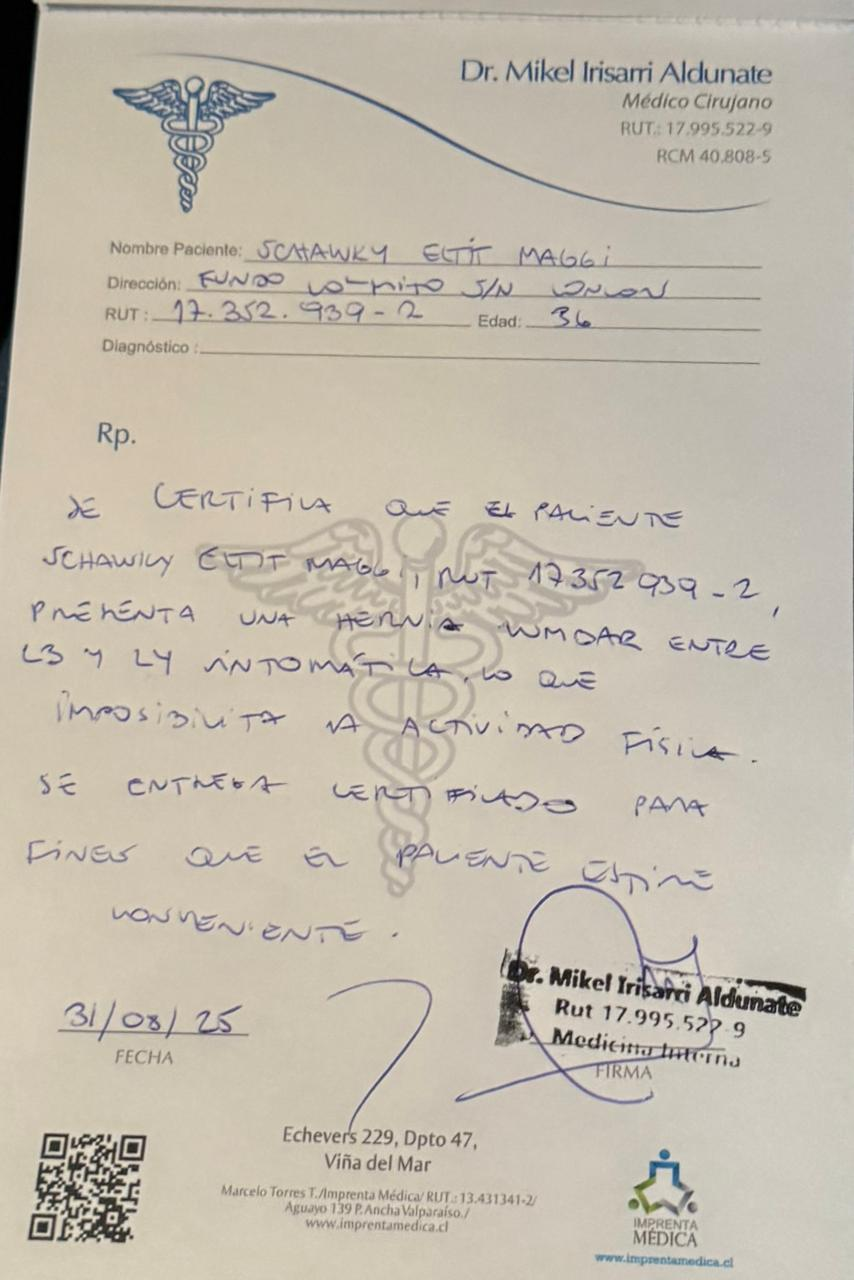 Dr. Mikel Irisarri Aldunate
Médico Cirujano
RUT.: 17.995.522-9
RCM 40.808-5
Nombre Paciente: SCHAWKY ELTIT MAGGi
Dirección: FUNDO S/N
RUT : 17.352.939-2 Edad: 36
Diagnóstico :
Rp.
SE CERTIFICA QUE EL PACIENTE
SCHAWKY ELTIT MAGGi, RUT 17352939-2,
PRESENTA UNA HERNIA LUMBAR ENTRE
L3 Y L4 SINTOMÁTICA, LO QUE
IMPOSIBILITA LA ACTIVIDAD FÍSICA.
SE ENTREGA CERTIFICADO PARA
FINES QUE EL PACIENTE ESTIME
CONVENIENTE.
31/08/25
FECHA
Dr. Mikel Irisarri Aldunate
Rut 17.995.522-9
Medicina Interna
FIRMA
Echevers 229, Dpto 47,
Viña del Mar
Marcelo Torres T./Imprenta Médica/ RUT.: 13.431341-2/
Aguayo 139 P. Ancha Valparaíso./
www.imprentamedica.cl
IMPRENTA
MÉDICA
www.imprentamedica.cl